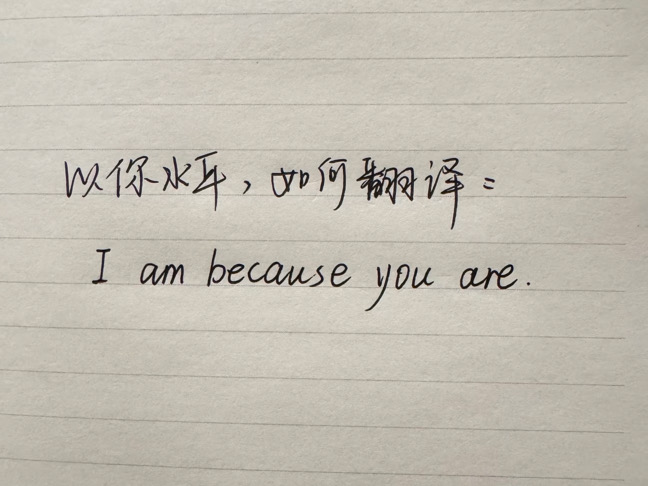 以你水平，如何翻译：
I am because you are.